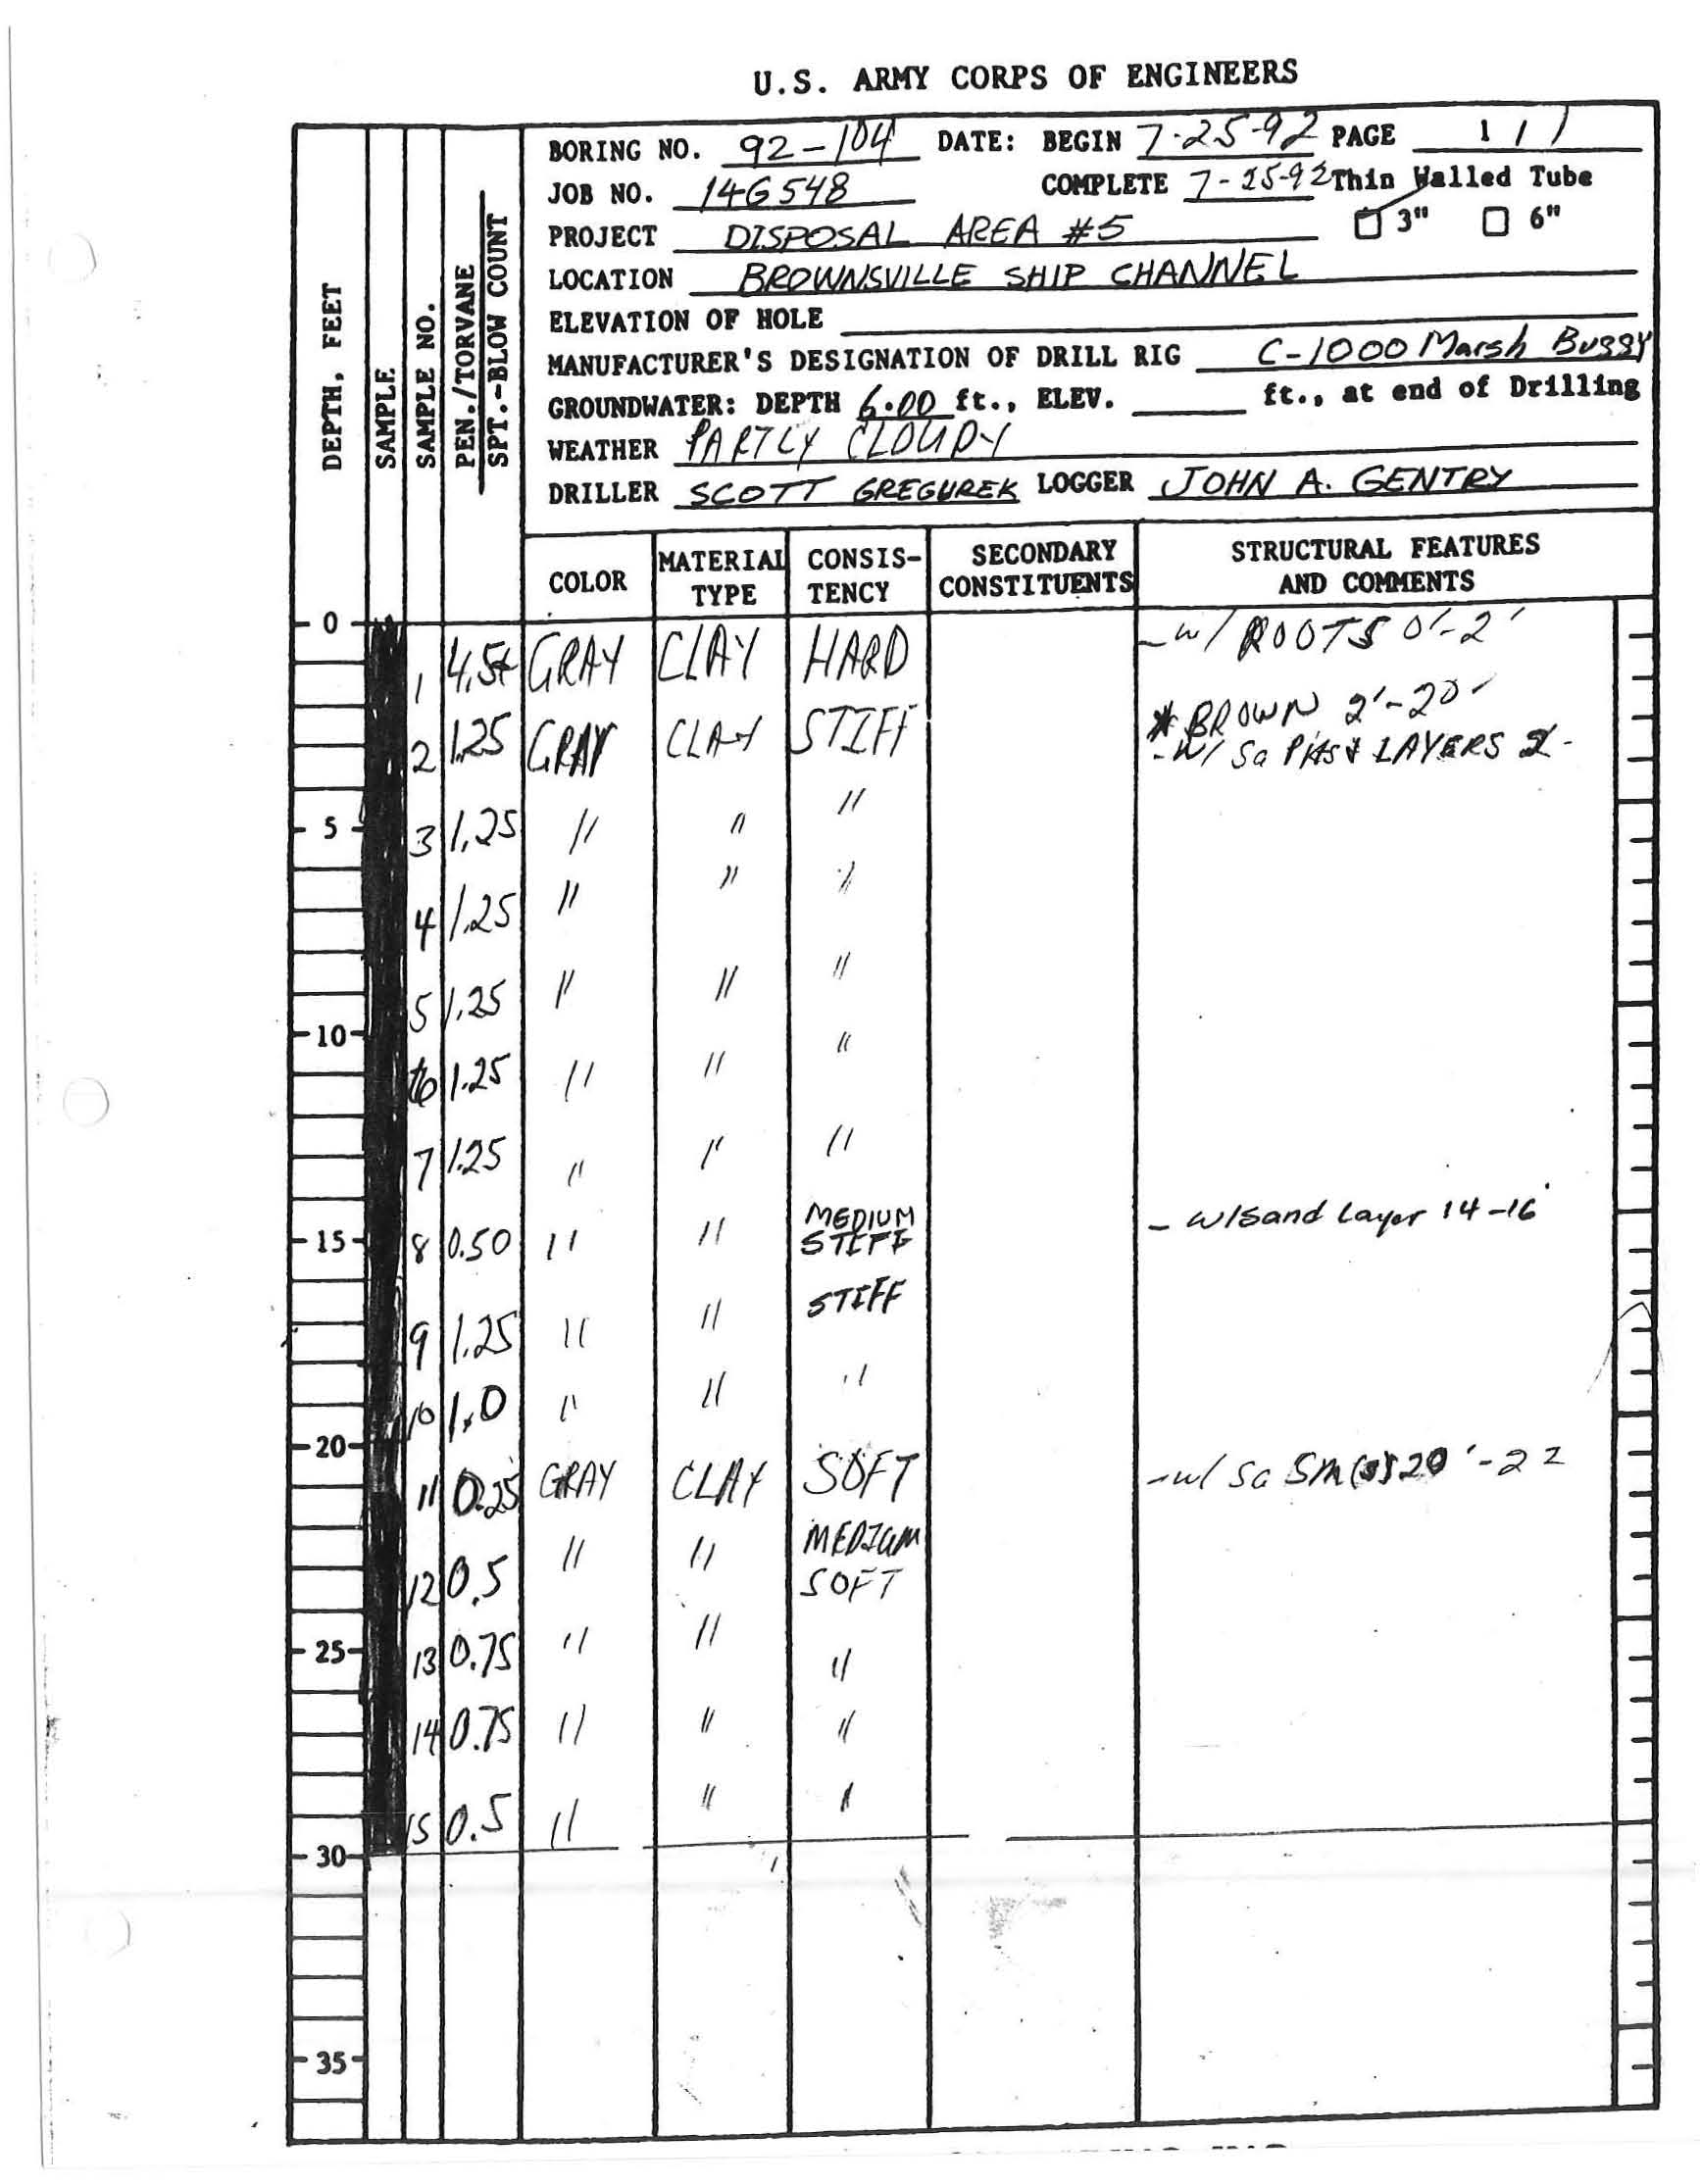 U.S. ARMY CORPS OF ENGINEERS
BORING NO. 92-104 DATE: BEGIN 7-25-92 PAGE 1 / 1
JOB NO. 14G548 COMPLETE 7-25-92 Thin Walled Tube
PROJECT DISPOSAL AREA #5 3" 6"
LOCATION BROWNSVILLE SHIP CHANNEL
ELEVATION OF HOLE
MANUFACTURER'S DESIGNATION OF DRILL RIG C-1000 Marsh Buggy
GROUNDWATER: DEPTH 6.00 ft., ELEV. ft., at end of Drilling
WEATHER PARTLY CLOUDY
DRILLER SCOTT GREGUREK LOGGER JOHN A. GENTRY
DEPTH, FEET
SAMPLE
SAMPLE NO.
PEN./TORVANE
SPT.-BLOW COUNT
COLOR MATERIAL TYPE CONSIS-TENCY SECONDARY CONSTITUENTS STRUCTURAL FEATURES AND COMMENTS
0
1 4.5+ GRAY CLAY HARD - w/ ROOTS 0'-2'
2 1.25 GRAY CLAY STIFF * BROWN 2'-20'
- w/ Sa LAYERS
5
3 1.25 " " "
4 1.25 " " "
5 1.25 " " "
10
6 1.25 " " "
7 1.25 " " "
15
8 0.50 " " MEDIUM STIFF - w/Sand Layer 14-16'
9 1.25 " " STIFF
10 1.0 " " "
20
11 0.25 GRAY CLAY SOFT - w/ Sa 20'-22
12 0.5 " " MEDIUM SOFT
25
13 0.75 " " "
14 0.75 " " "
15 0.5 " " "
30
35